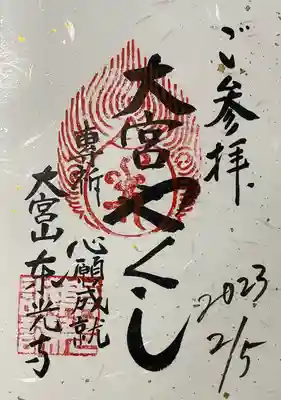 ご参拝
2023
2/5
大宮やくし
専祈 心願成就
大宮山東光寺